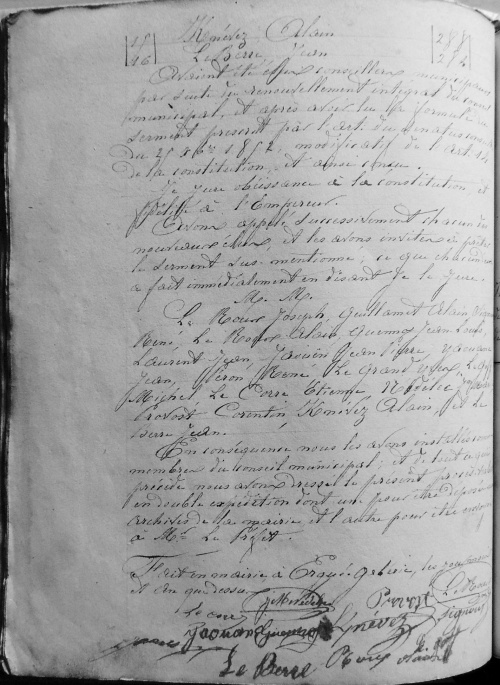 15 Kneves Alain 288
16 Le Berre Jean 284
Avaient été élus conseillers municipaux
par suite du renouvellement intégral du conseil
municipal, et après avoir lu la formule du
serment prescrit par l'art. du senatus cons
du 25 Xbre 1852, modificatif de l'art. 14
de la constitution, et ainsi conçu.
Je Jure obéissance à la constitution et
fidélité à l'Empereur.
Avons appelé successivement chacun des
nouveaux élus, et les avons invités à prêter
le serment sus-mentionné; ce que chacun
a fait immédiatement en disant Je le Jure.
M. M.
Le Roux Joseph, Guillamet Alain
René, Le Roux Alain Guennoc Jean Louis,
Laurent Jean, Jean Pierre,
Jean, René Le Grand Yves, Le
Michel, Le Corre Etienne
Provost Corentin Knevez Alain, et Le
Berre Jean.
En conséquence nous les avons installés comme
membres du conseil municipal; et de tout ce que
précède nous avons dressé le présent procès
en double expédition dont un pour être déposé aux
archives de la mairie et l'autre pour être
à Mr Le Préfet.
Fait en mairie à les jour mois
et an que dessus
Le Roux
Le corre Provost
Jaouan Knevez
Le Berre Roux